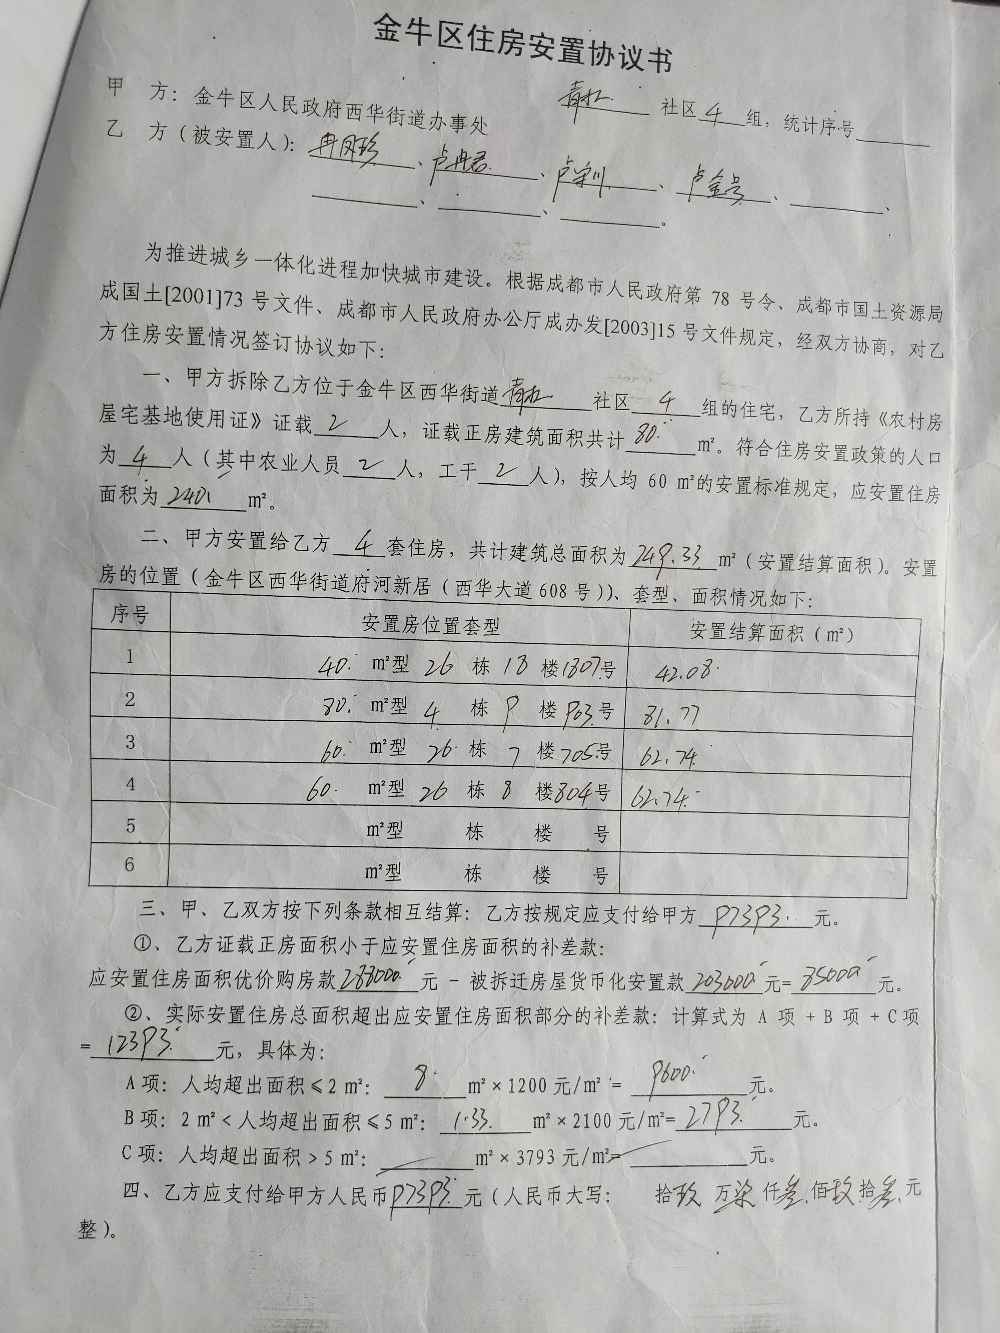 金牛区住房安置协议书
甲 方：金牛区人民政府西华街道办事处 社区 4 组，统计序号
乙 方（被安置人）：冉凤珍、卢冉君、卢 、卢金 、 、
、 、 。
为推进城乡一体化进程加快城市建设。根据成都市人民政府第 78 号令、成都市国土资源局
成国土[2001]73 号文件、成都市人民政府办公厅成办发[2003]15 号文件规定，经双方协商，对乙
方住房安置情况签订协议如下：
一、甲方拆除乙方位于金牛区西华街道 社区 4 组的住宅，乙方所持《农村房
屋宅基地使用证》证载 2 人，证载正房建筑面积共计 80. ㎡。符合住房安置政策的人口
为 4 人（其中农业人员 2 人，工干 2 人），按人均 60 ㎡的安置标准规定，应安置住房
面积为 240. ㎡。
二、甲方安置给乙方 4 套住房，共计建筑总面积为 249.33 ㎡（安置结算面积）。安置
房的位置（金牛区西华街道府河新居（西华大道 608 号））、套型、面积情况如下：
序号 安置房位置套型 安置结算面积（㎡）
1 40. ㎡型 26 栋 13 楼 1307 号 42.08
2 80. ㎡型 4 栋 9 楼 903 号 81.77
3 60. ㎡型 26 栋 7 楼 705 号 62.74
4 60. ㎡型 26 栋 8 楼 804 号 62.74
5 ㎡型 栋 楼 号
6 ㎡型 栋 楼 号
三、甲、乙双方按下列条款相互结算：乙方按规定应支付给甲方 97393. 元。
①、乙方证载正房面积小于应安置住房面积的补差款：
应安置住房面积优价购房款 288000 元 - 被拆迁房屋货币化安置款 203000 元= 85000 元。
②、实际安置住房总面积超出应安置住房面积部分的补差款：计算式为 A 项 + B 项 + C 项
= 12393. 元，具体为：
A 项：人均超出面积≤2 ㎡： 8. ㎡×1200 元/㎡ = 9600 元。
B 项：2 ㎡<人均超出面积≤5 ㎡： 1.33 ㎡×2100 元/㎡= 2793. 元。
C 项：人均超出面积>5 ㎡： ㎡×3793 元/㎡= 元。
四、乙方应支付给甲方人民币 97393. 元（人民币大写： 拾玖 万柒 仟叁 佰玖 拾叁 元
整）。